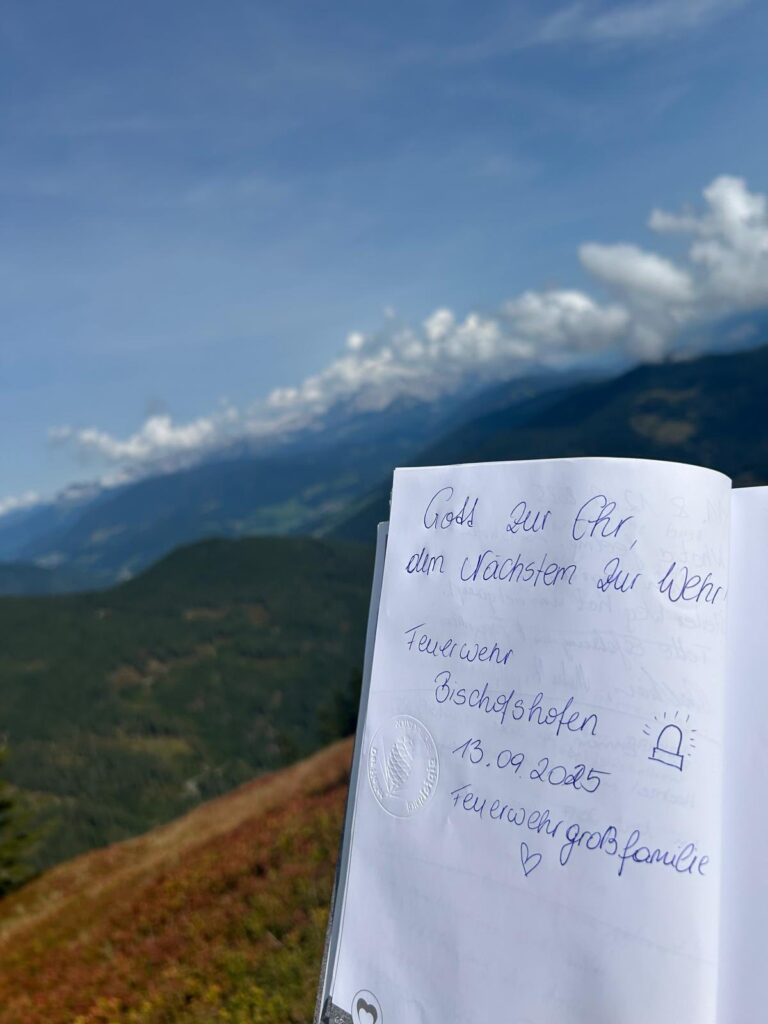 Gott zur Ehr,
dem Nächsten zur Wehr
Feuerwehr
Bischofshofen
13.09.2025
Feuerwehrgroßfamilie